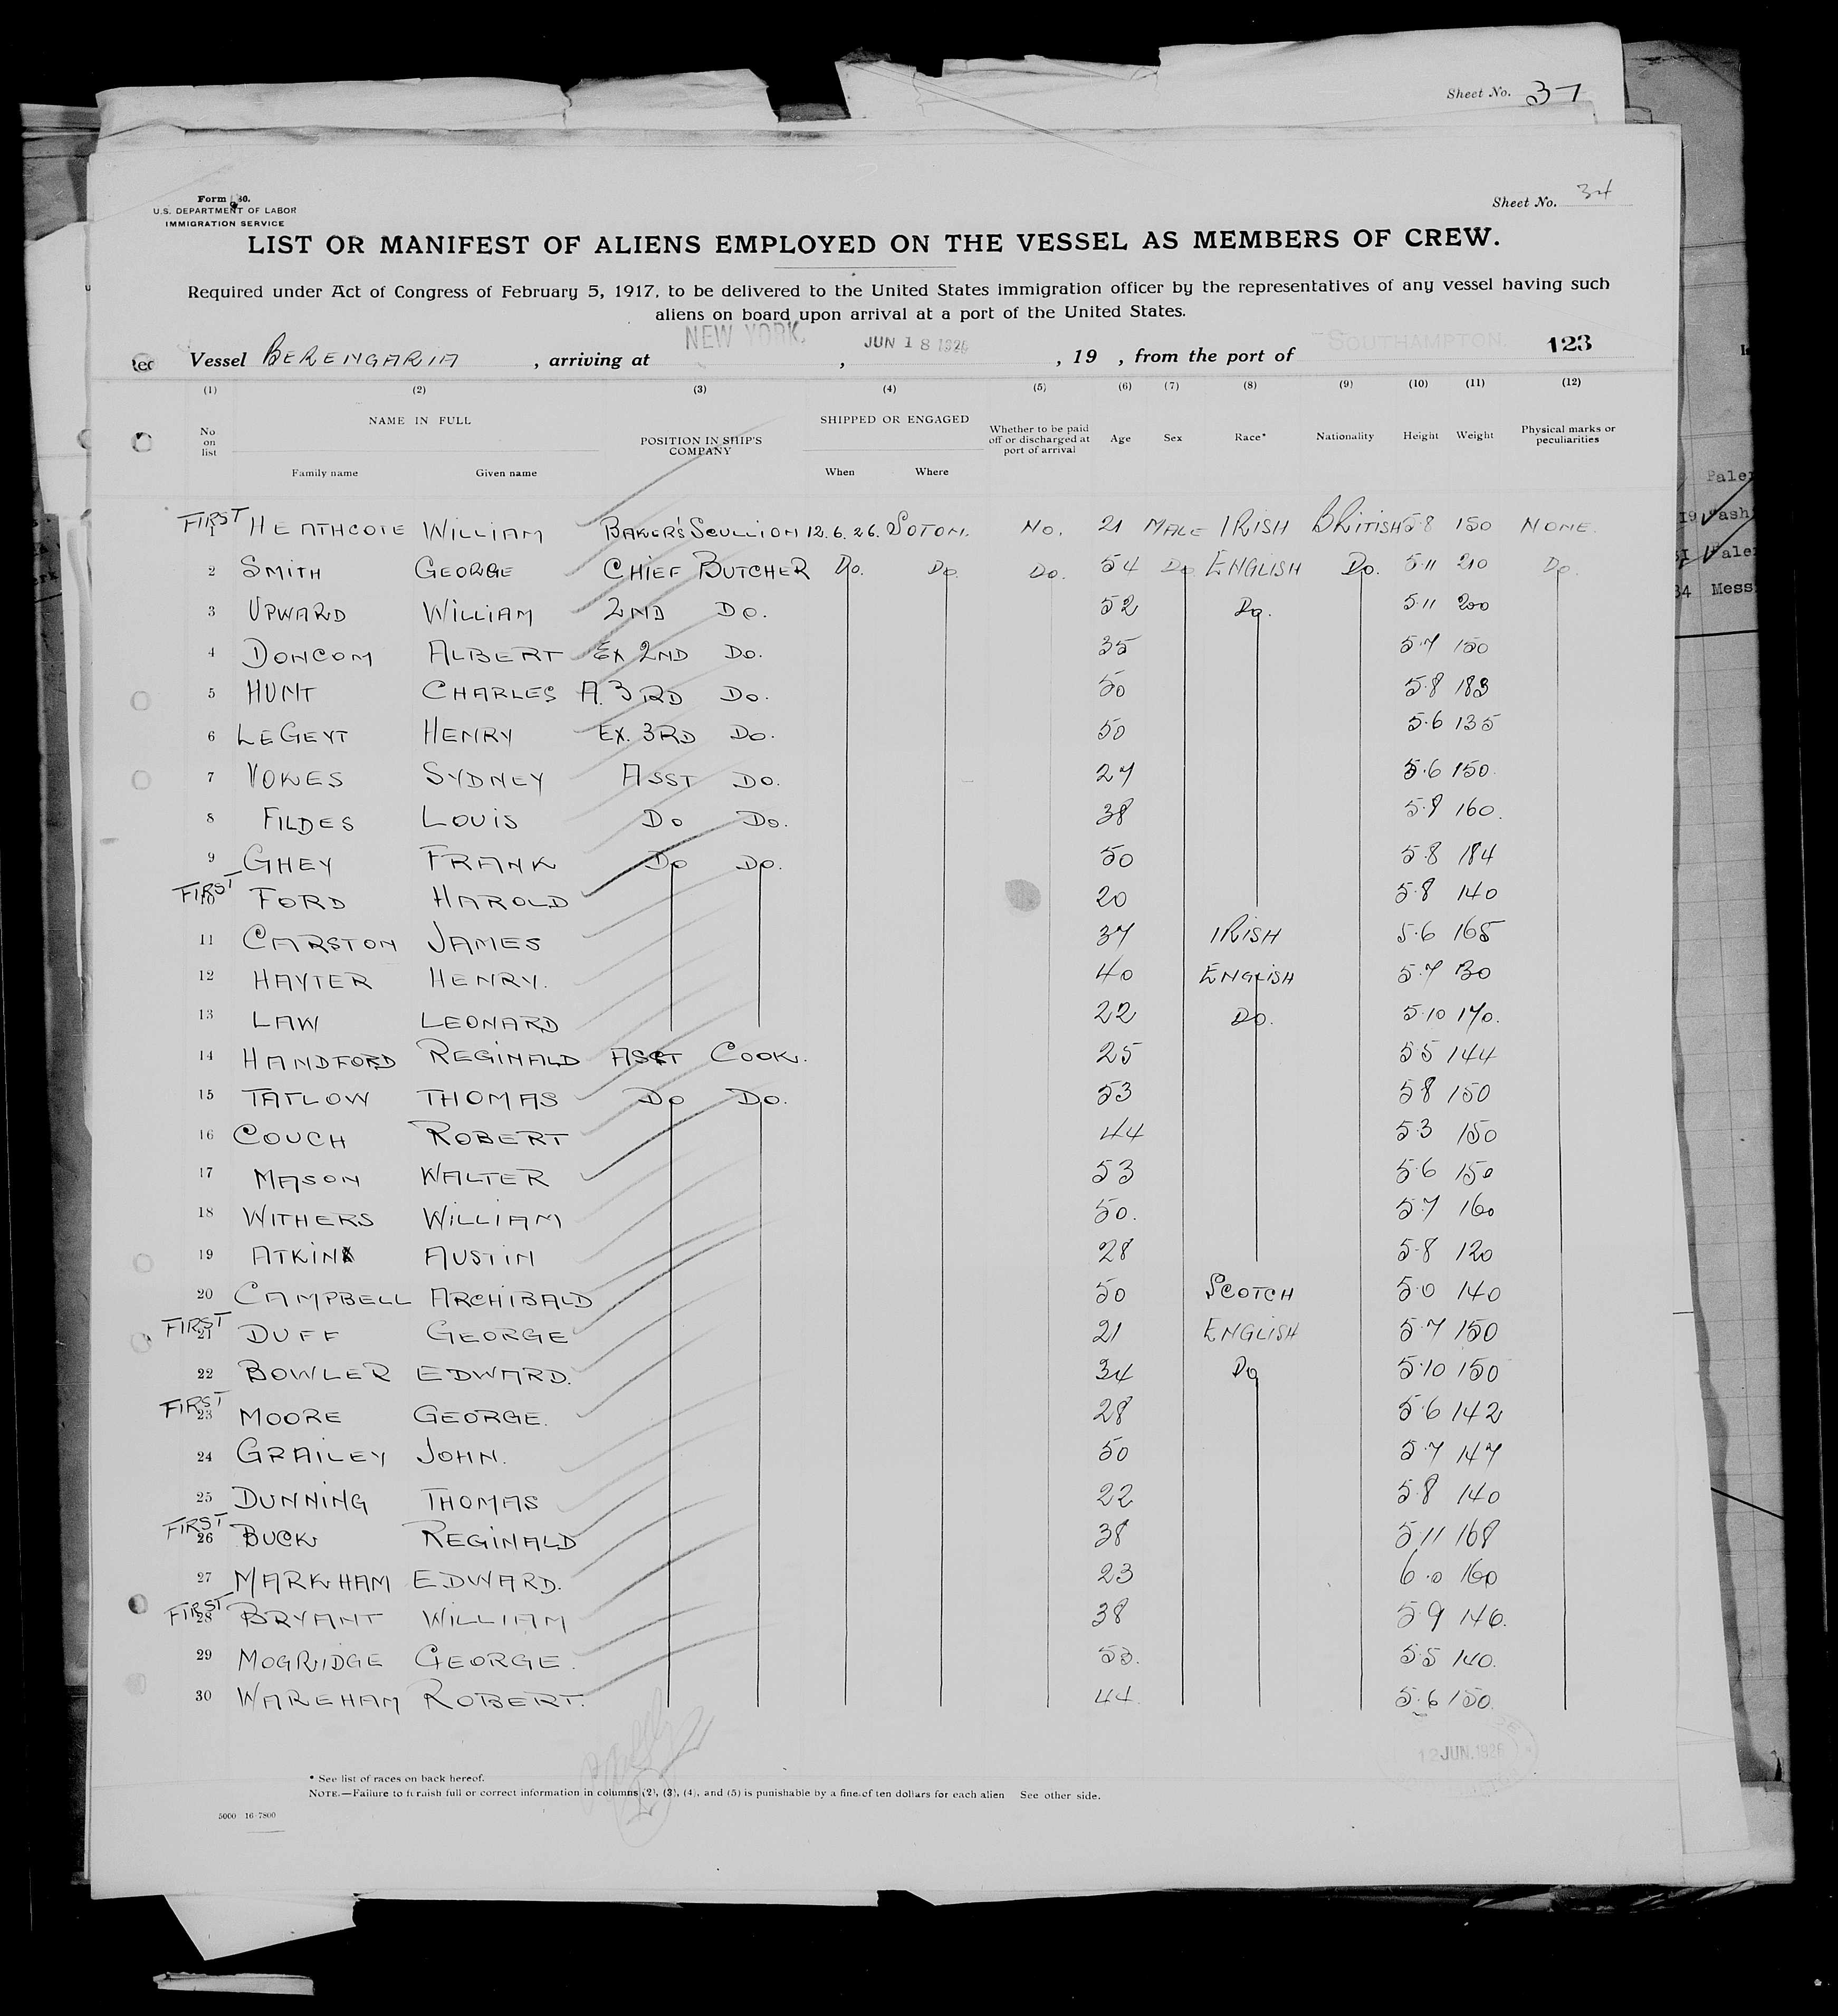 Sheet No. 37
Form 680.
U.S. DEPARTMENT OF LABOR
IMMIGRATION SERVICE
Sheet No. 34
LIST OR MANIFEST OF ALIENS EMPLOYED ON THE VESSEL AS MEMBERS OF CREW.
Required under Act of Congress of February 5, 1917, to be delivered to the United States immigration officer by the representatives of any vessel having such
aliens on board upon arrival at a port of the United States.
Vessel BERENGARIA, arriving at NEW YORK, JUN 18 1926, 19 , from the port of SOUTHAMPTON. 123
(1) (2) (3) (4) (5) (6) (7) (8) (9) (10) (11) (12)
No on list NAME IN FULL Family name Given name POSITION IN SHIP'S COMPANY SHIPPED OR ENGAGED When Where Whether to be paid off or discharged at port of arrival Age Sex Race* Nationality Height Weight Physical marks or peculiarities
FIRST 1 HEATHCOTE WILLIAM BAKER'S SCULLION 12.6.26. SOTON. NO. 21 MALE IRISH BRITISH 5·8 150 NONE.
2 SMITH GEORGE CHIEF BUTCHER DO. DO. DO. 54 DO ENGLISH DO. 5·11 210 DO.
3 UPWARD WILLIAM 2ND DO. 52 DO. 5·11 200
4 DONCOM ALBERT EX 2ND DO. 35 5·7 150
5 HUNT CHARLES A. 3RD DO. 50 5·8 183
6 LEGEYT HENRY EX. 3RD DO. 50 5·6 135
7 VOKES SYDNEY ASST DO. 27 5·6 150.
8 FILDES LOUIS DO DO. 38 5·8 160.
9 GHEY FRANK DO DO. 50 5·8 184
FIRST 10 FORD HAROLD 20 5·8 140
11 CARSTON JAMES 37 IRISH 5·6 165
12 HAYTER HENRY. 40 ENGLISH 5·7 130
13 LAW LEONARD 22 DO. 5·10 170.
14 HANDFORD REGINALD ASST COOK. 25 5 5 144
15 TATLOW THOMAS DO DO. 53 5 8 150
16 COUCH ROBERT 44 5·3 150
17 MASON WALTER 53 5·6 150
18 WITHERS WILLIAM 50. 5·7 160
19 ATKIN AUSTIN 28 5·8 120
20 CAMPBELL ARCHIBALD 50 SCOTCH 5·0 140
FIRST 21 DUFF GEORGE 21 ENGLISH 5·7 150
22 BOWLER EDWARD. 34 DO 5·10 150
FIRST 23 MOORE GEORGE. 28 5·6 142
24 GRAILEY JOHN. 50 5·7 147
25 DUNNING THOMAS 22 5·8 140
FIRST 26 BUCK REGINALD 38 5·11 168
27 MARKHAM EDWARD. 23 6·0 160
FIRST 28 BRYANT WILLIAM 38 5·9 146.
29 MOGRIDGE GEORGE. 53. 5·5 140.
30 WAREHAM ROBERT. 44. 5·6 150.
12 JUN. 1926
* See list of races on back hereof.
NOTE.—Failure to furnish full or correct information in columns (2), (3), (4), and (5) is punishable by a fine of ten dollars for each alien See other side.
5000 16-7800